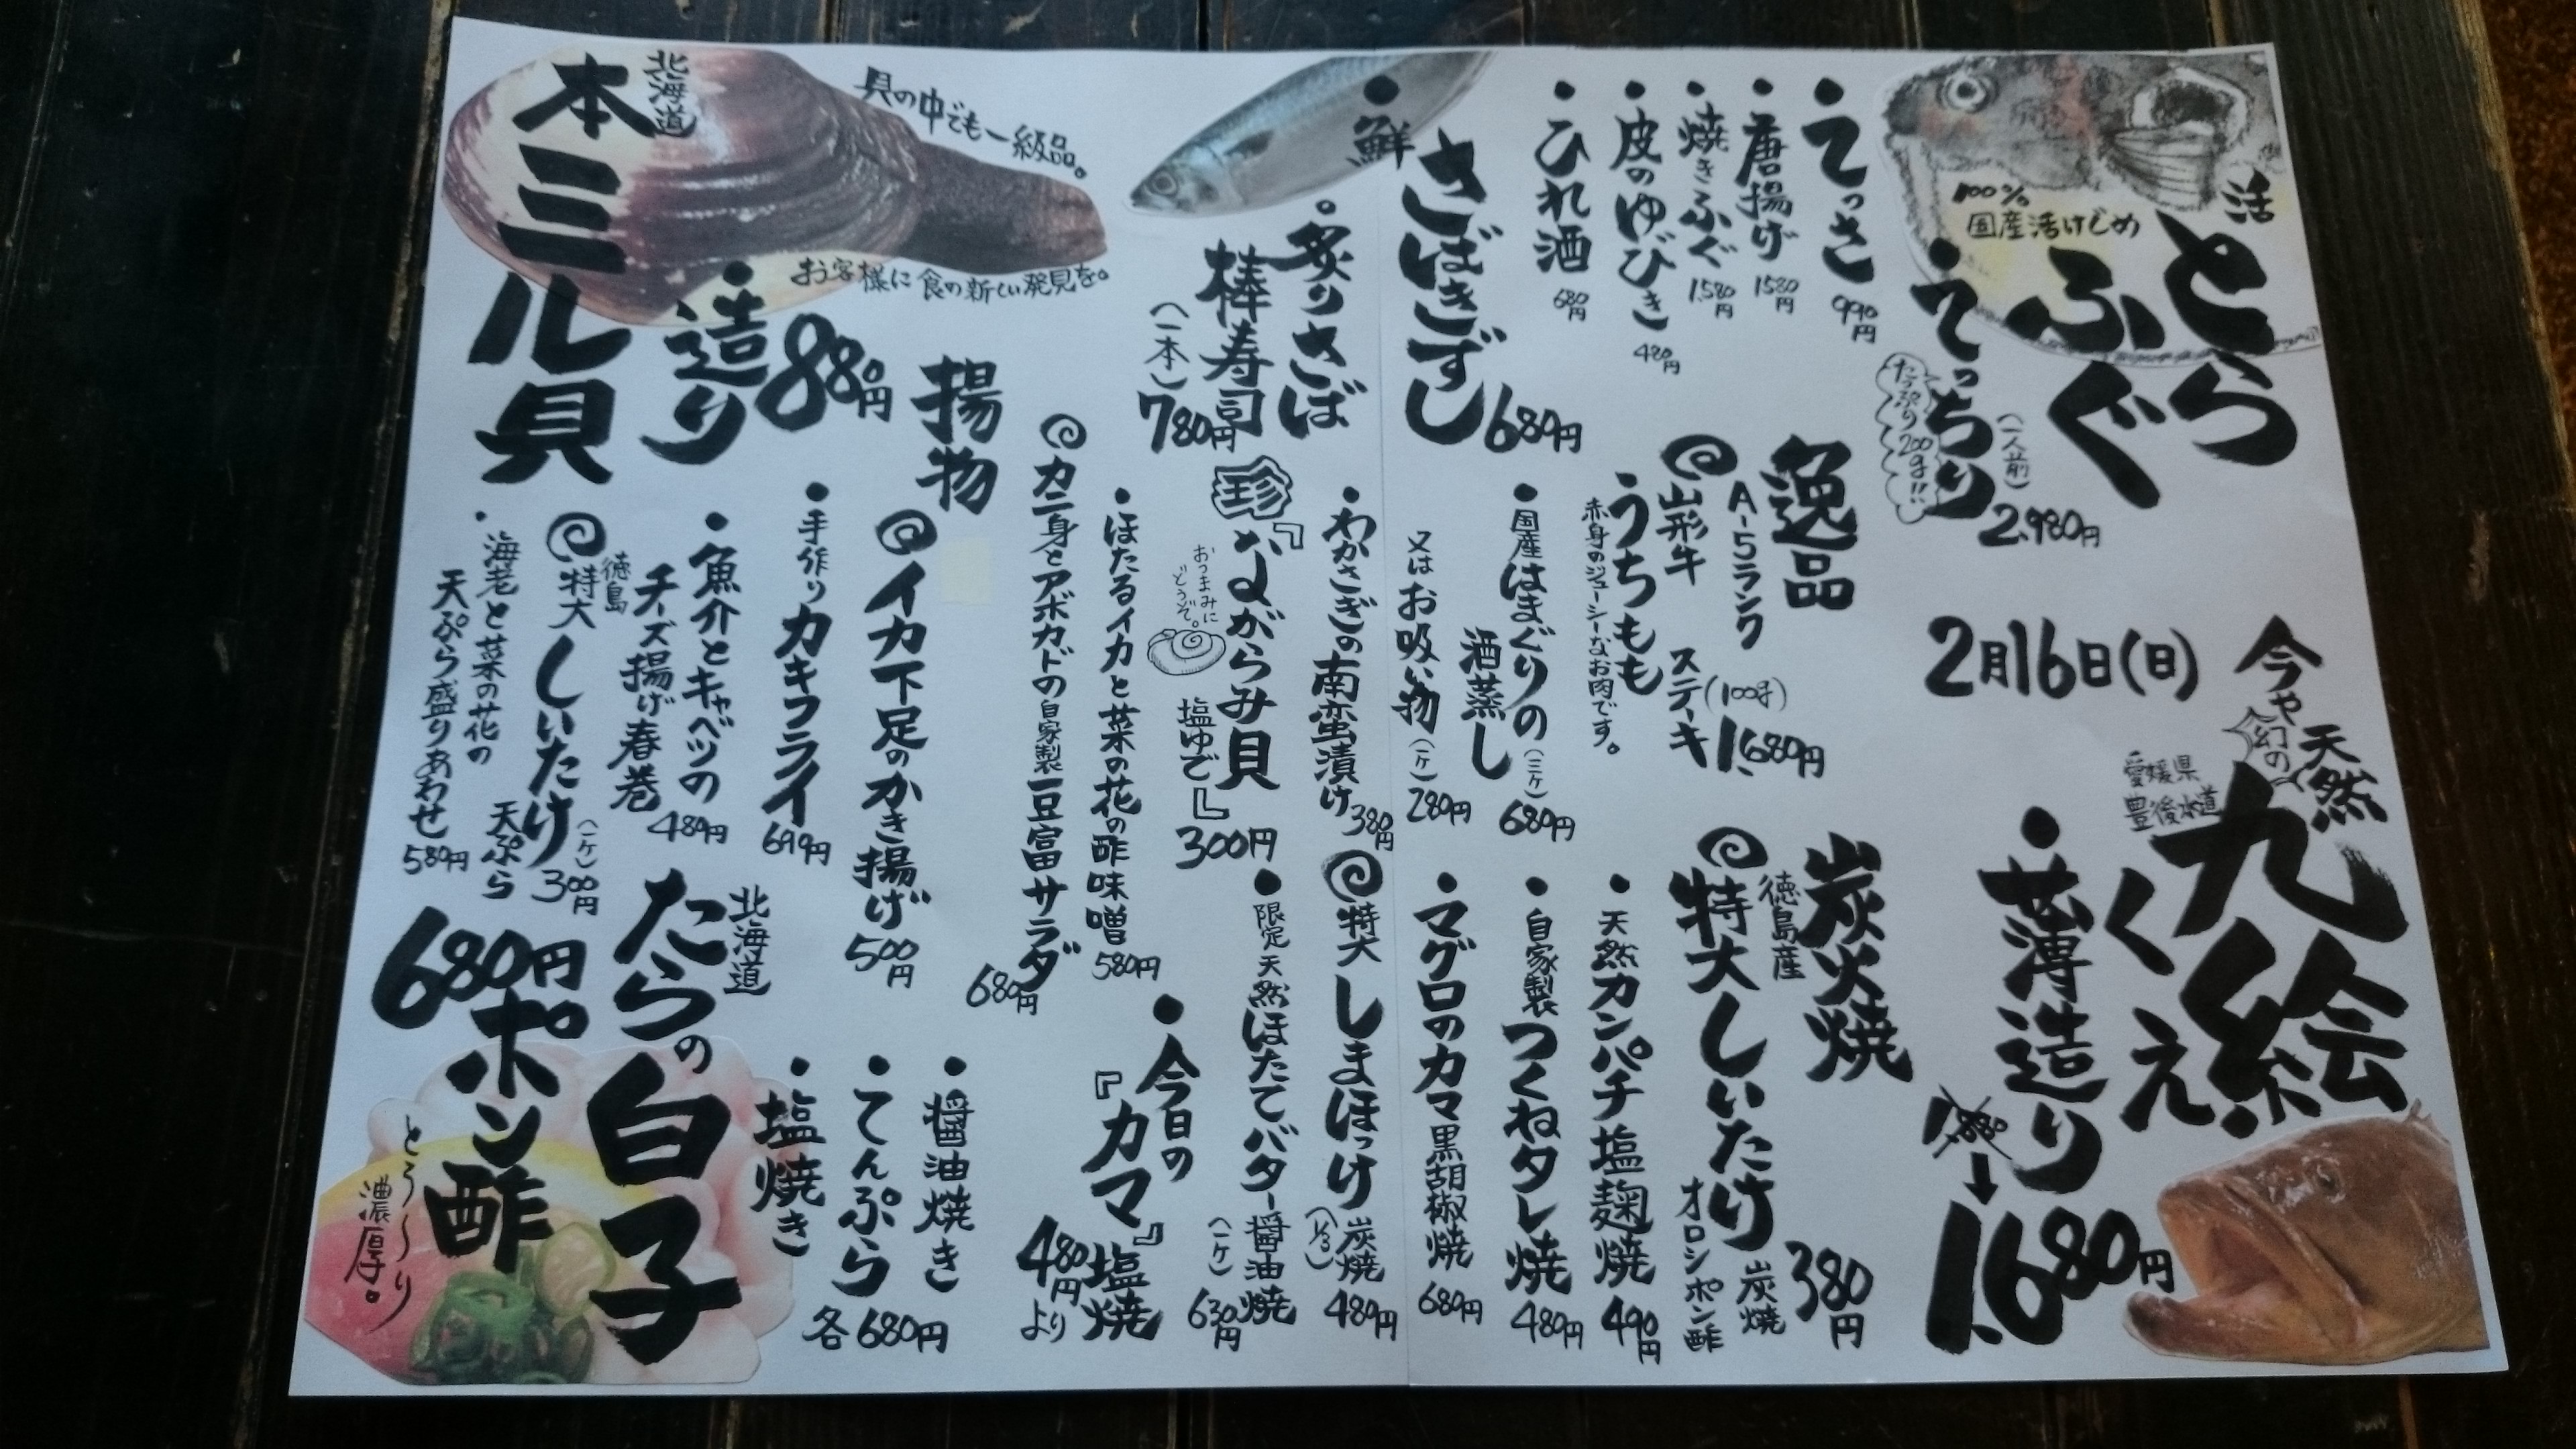 活
とら
ふぐ
100%
国産活けじめ
・てっちり
(一人前)
2,980円
たっぷり200g!!
・てっさ 990円
・唐揚げ 1580円
・焼きふぐ 1,580円
・皮のゆびき 480円
・ひれ酒 680円
・鮮 さばきずし 680円
・炙りさば
棒寿司
(一本) 780円
北海道
本ミル貝
貝の中でも一級品。
お客様に食の新しい発見を。
・造り 880円
2月16日(日)
逸品
A-5ランク
山形牛 ステーキ(100g) 1,680円
うちもも
赤身のジューシーなお肉です。
・国産はまぐりの(三ケ) 680円
酒蒸し
又はお吸い物(一ケ) 280円
・わかさぎの南蛮漬け 380円
珍『ながらみ貝
塩ゆで』 300円
おつまみに
どうぞ。
・ほたるイカと菜の花の酢味噌 580円
カニ身とアボカドの自家製豆富サラダ 680円
揚物
イカ下足のかき揚げ 500円
・手作りカキフライ 699円
・魚介とキャベツの 480円
チーズ揚げ春巻
徳島
特大しいたけ(一ケ) 300円
天ぷら
・海老と菜の花の
天ぷら盛りあわせ 580円
今や幻の
天然
九絵
くえ
愛媛県
豊後水道
・薄造り
↓
1,680円
炭火焼
徳島産
特大しいたけ 炭焼 380円
オロシポン酢
・天然カンパチ塩麹焼 490円
・自家製つくねタレ焼 480円
・マグロのカマ黒胡椒焼 680円
特大しまほっけ 炭焼 480円
・限定天然ほたてバター醤油焼
(一ケ) 630円
・今日の
『カマ』塩焼
480円より
北海道
たらの白子
・醤油焼き
・てんぷら
・塩焼き
各680円
ポン酢
680円
とろ〜り
濃厚。